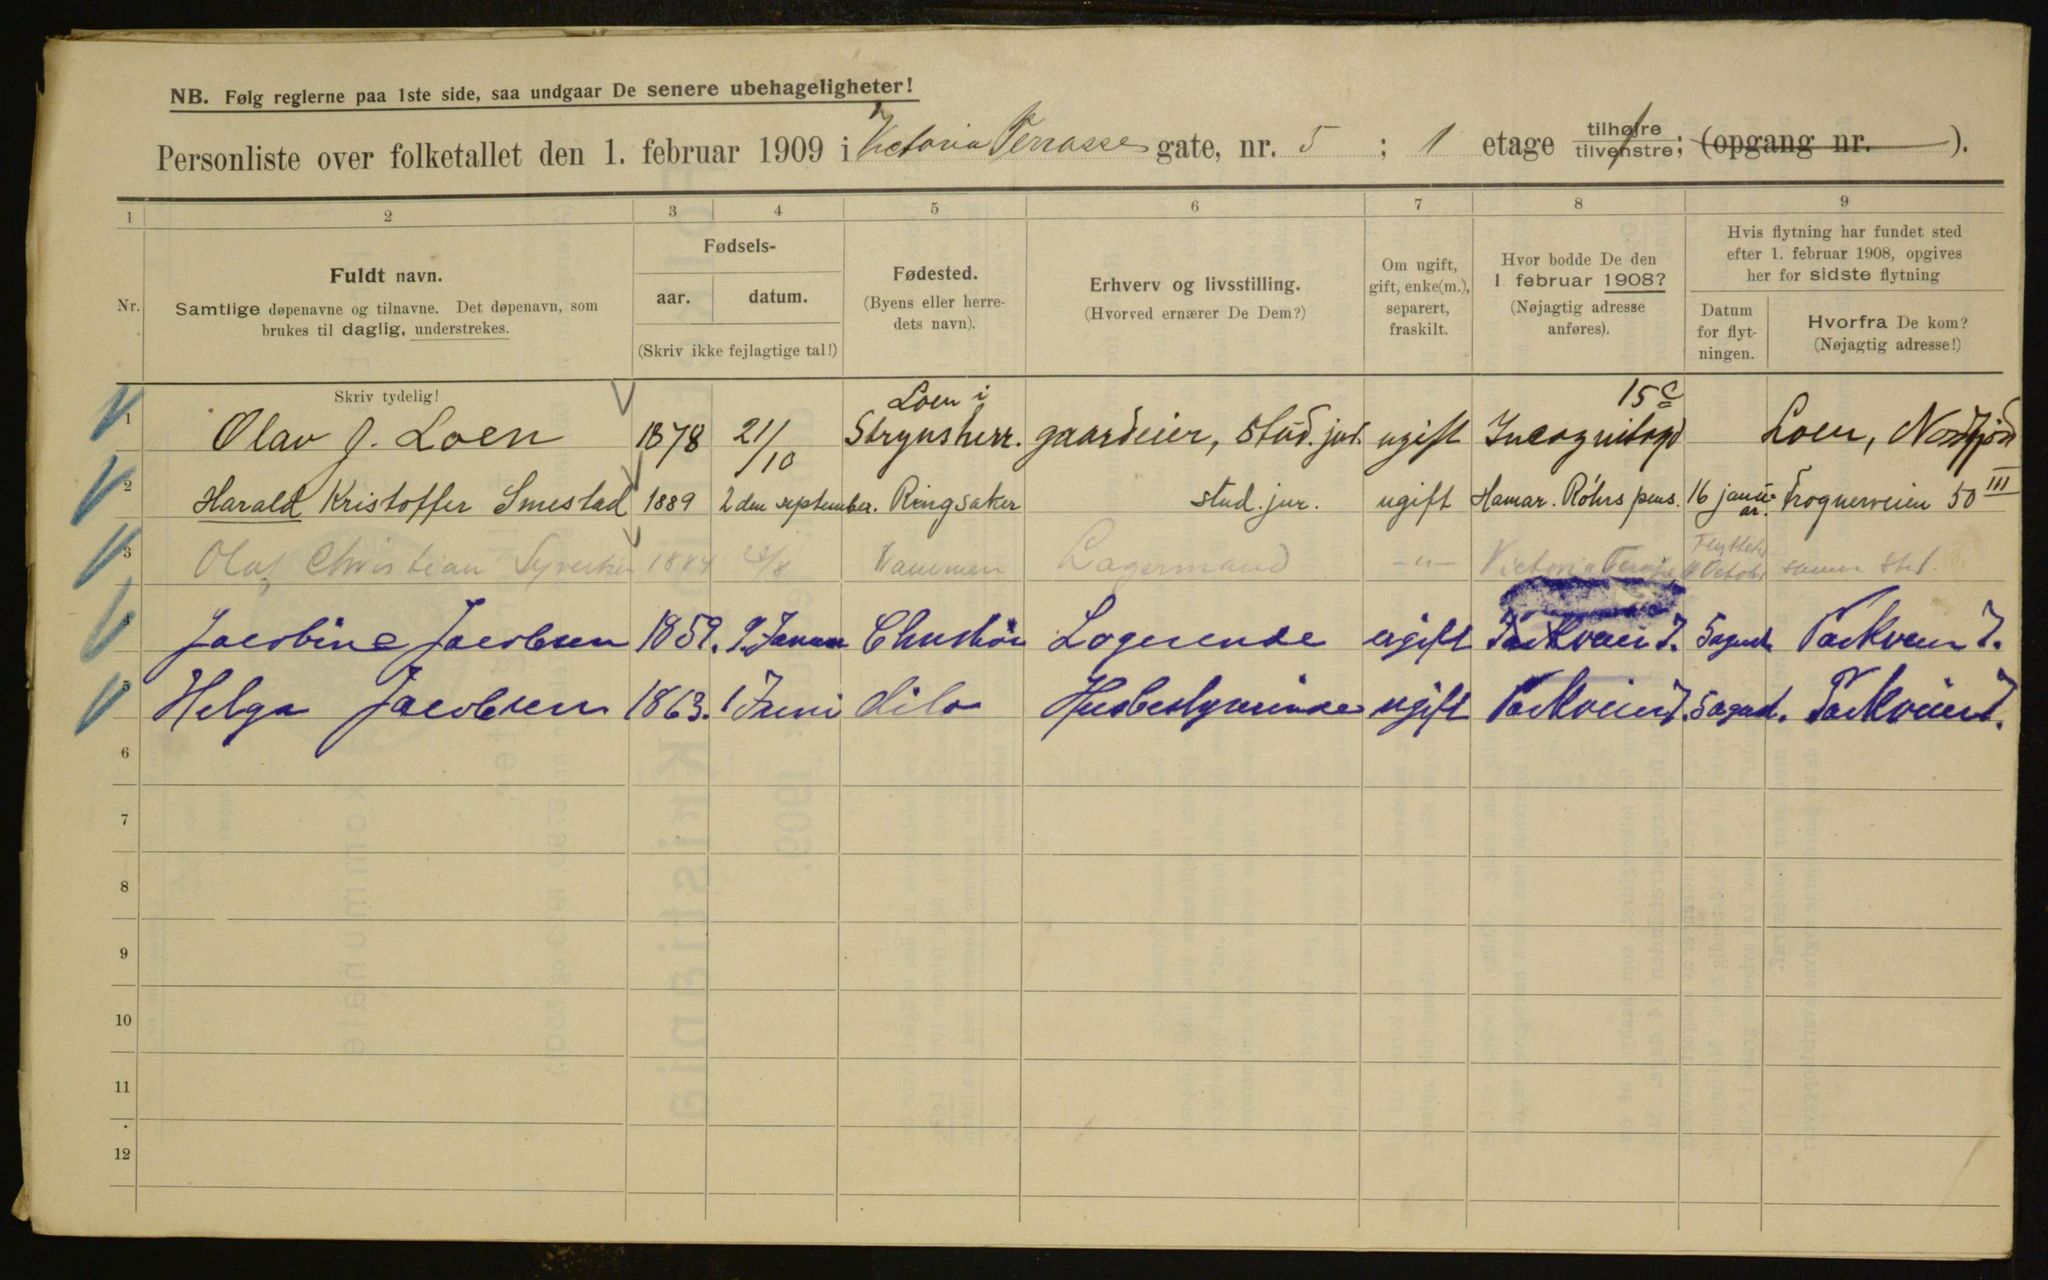 NB. Følg reglerne paa 1ste side, saa undgaar De senere ubehageligheter!
Personliste over folketallet den 1. februar 1909 i Victoria Terrasse gate, nr. 5 ; 1 etage tilhøire tilvenstre; (opgang nr. ).
1 2 3 4 5 6 7 8 9
Nr.
Fuldt navn.
Samtlige døpenavne og tilnavne. Det døpenavn, som
brukes til daglig, understrekes.
Fødsels-
aar. datum.
(Skriv ikke fejlagtige tal!)
Fødested.
(Byens eller herre-
dets navn).
Erhverv og livsstilling.
(Hvorved ernærer De Dem?)
Om ugift,
gift, enke(m.),
separert,
fraskilt.
Hvor bodde De den
1 februar 1908?
(Nøjagtig adresse
anføres).
Hvis flytning har fundet sted
efter 1. februar 1908, opgives
her for sidste flytning
Datum
for flyt-
ningen.
Hvorfra De kom?
(Nøjagtig adresse!)
Skriv tydelig!
Loen i 15 c
1 Olav J. Loen 1878 21/10 Strynsherr. gaardeier, Stud. jur. ugift Incognitogd Loen, Nordfjord
2 Harald Kristoffer Smestad 1889 2den september. Ringsaker stud. jur. ugift Hamar. Röhrs pens. 16 januar. Frognerveien 50 III
3 Olaf Christian 1884 /8 Lagermand —"— Victoria Flyttet October samme sted.
Jacobine Jacobsen 1859. 9. Januar Logerende ugift Parkveien 7. 5 agust. Parkveien 7.
5 Helga Jacobsen 1863. 1 Juni dito Husbestyrerinde ugift Parkveien 7. 5 agust. Parkveien 7.
6
7
8
9
10
11
12